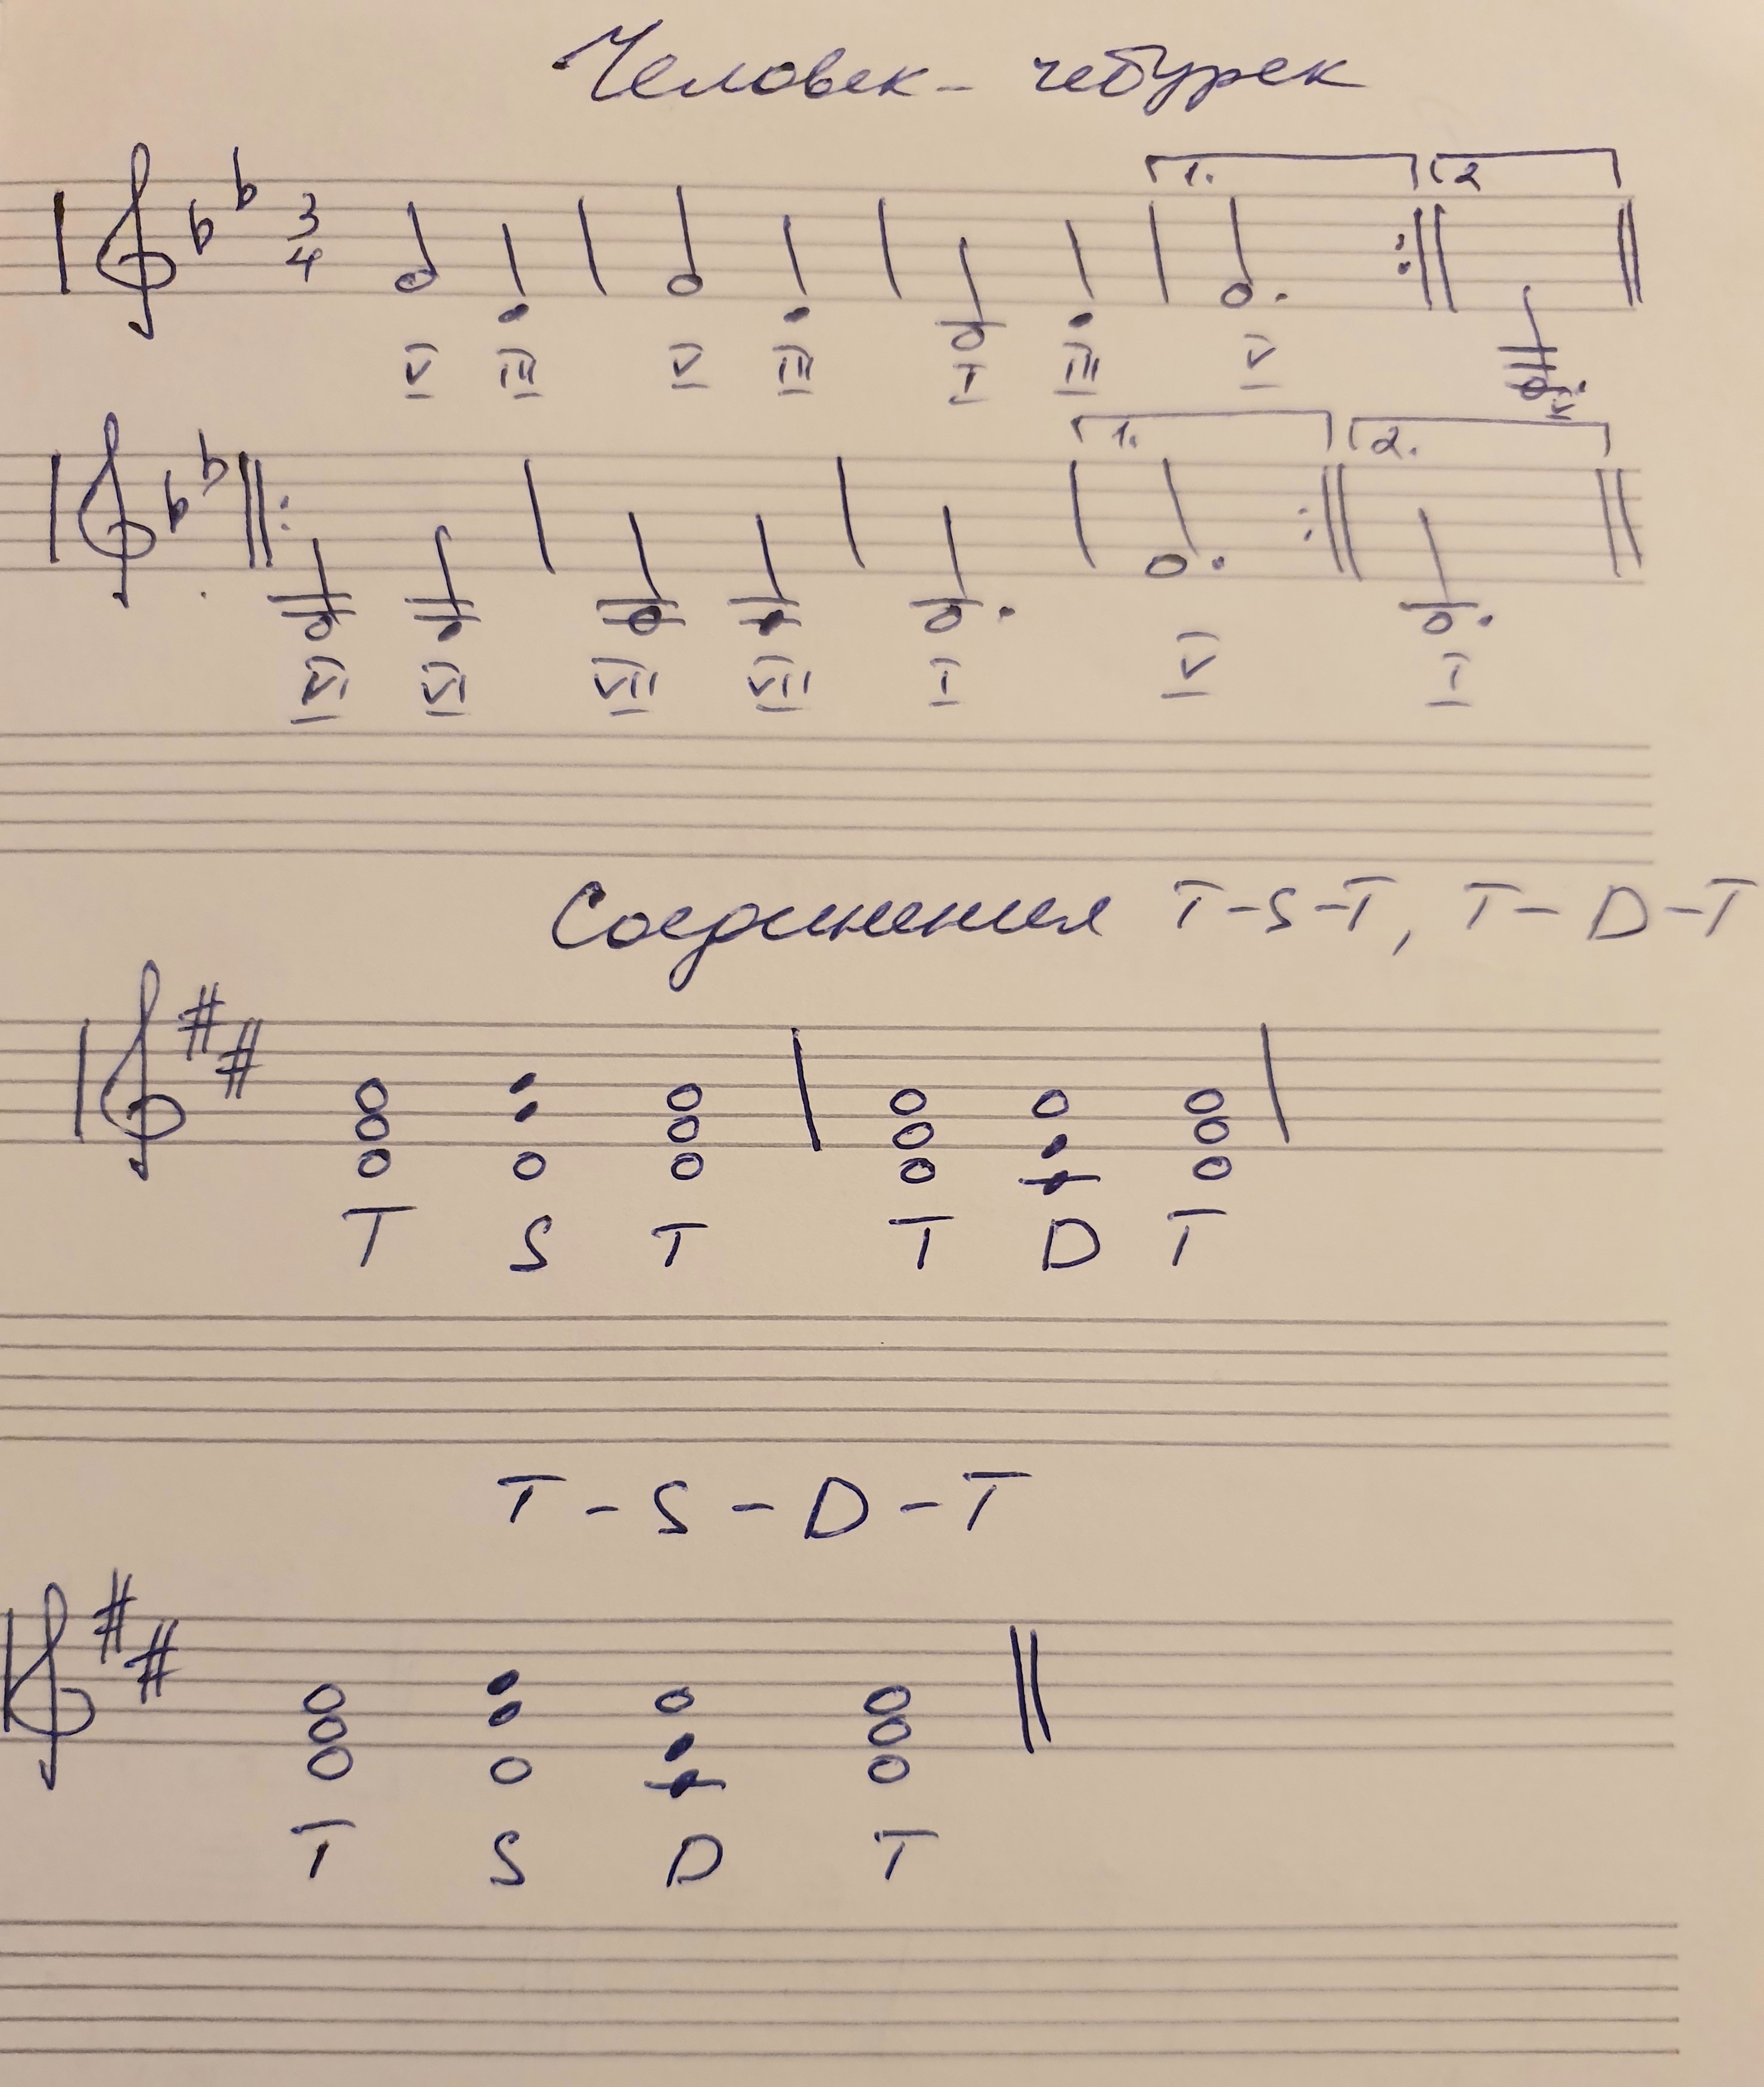 Человек - чебурек
1. 2
3
4
V III V III I III V V
1. 2.
VI VI VII VII I V I
Соединения T-S-T, T-D-T
T S T T D T
T-S-D-T
T S D T